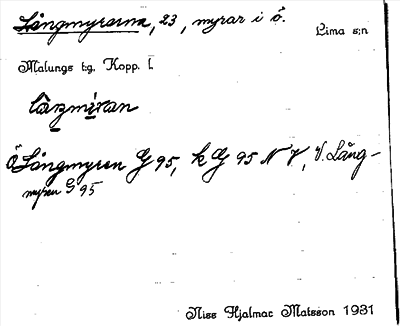 Långmyrarna, 23, myrar i ö.
Lima s:n
Malungs tg. Kopp. l.
lâŋmiran
Ö Långmyren G 95, k G 95 N V, V. Lång-
myren G 95
Niss Hjalmar Matsson 1931